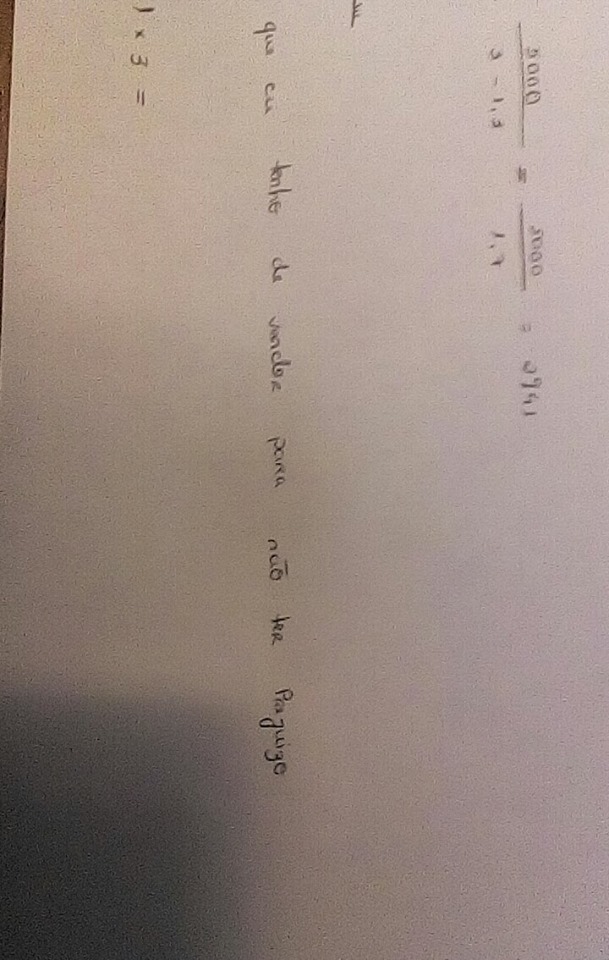 5000 / 3 - 1,3 = 5000 / 1,7 = 2941
que eu tenho de vender para não ter Prajuizo
1 x 3 =